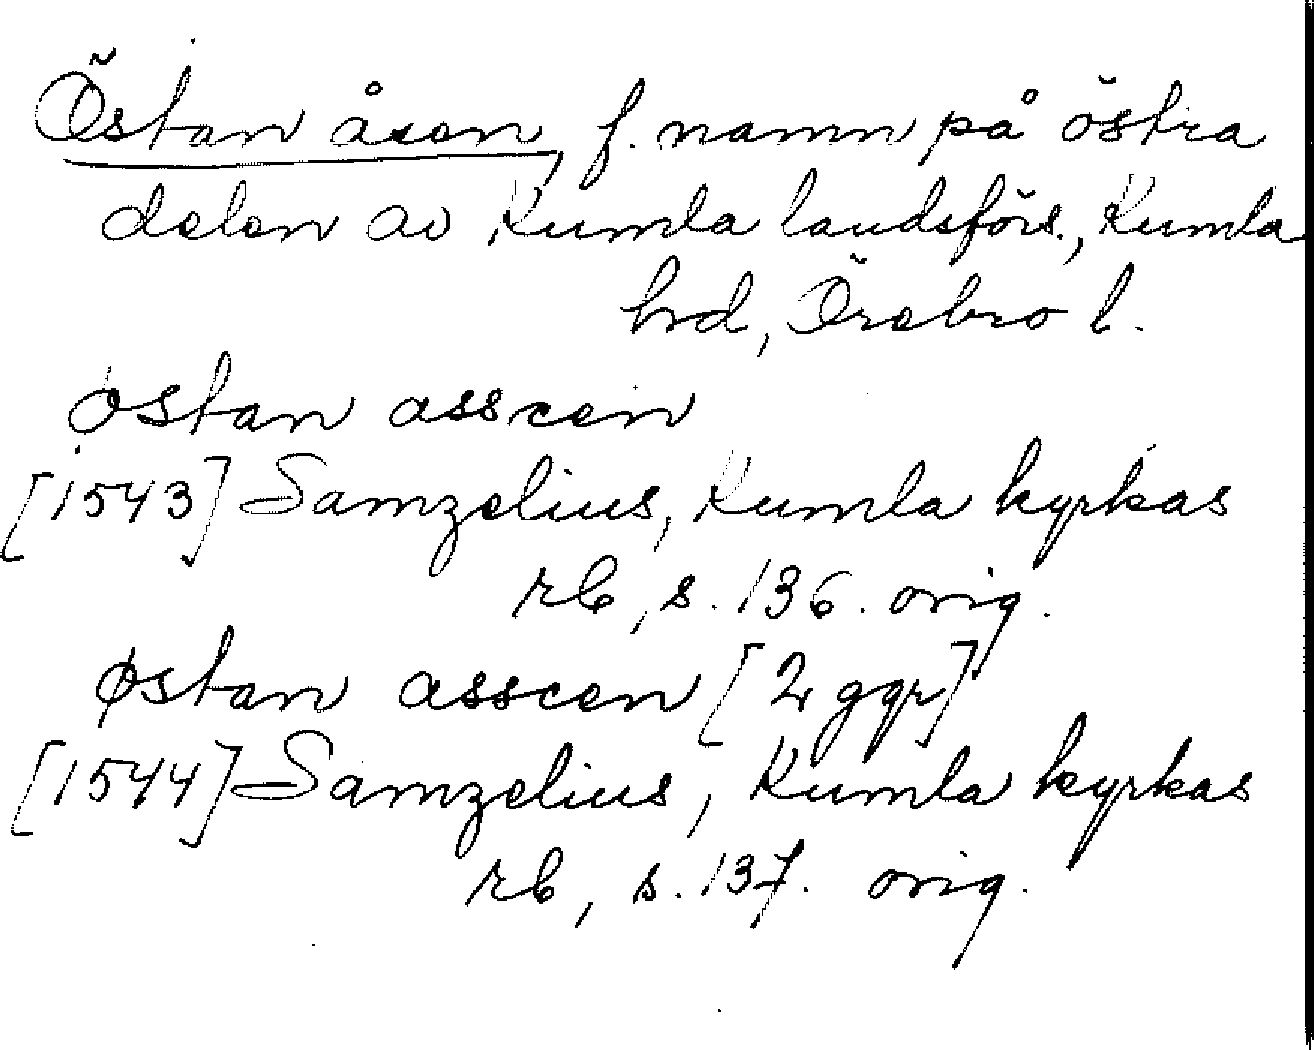 Östan åsen, f. namn på östra
delen av Kumla landsförs., Kumla
hrd, Örebro l.
østan asscen
[1543] Samzelius, Kumla kyrkas
rb, s. 136. orig.
østan asscen [2 ggr]
[1544] Samzelius, Kumla kyrkas
rb, s. 137. orig.